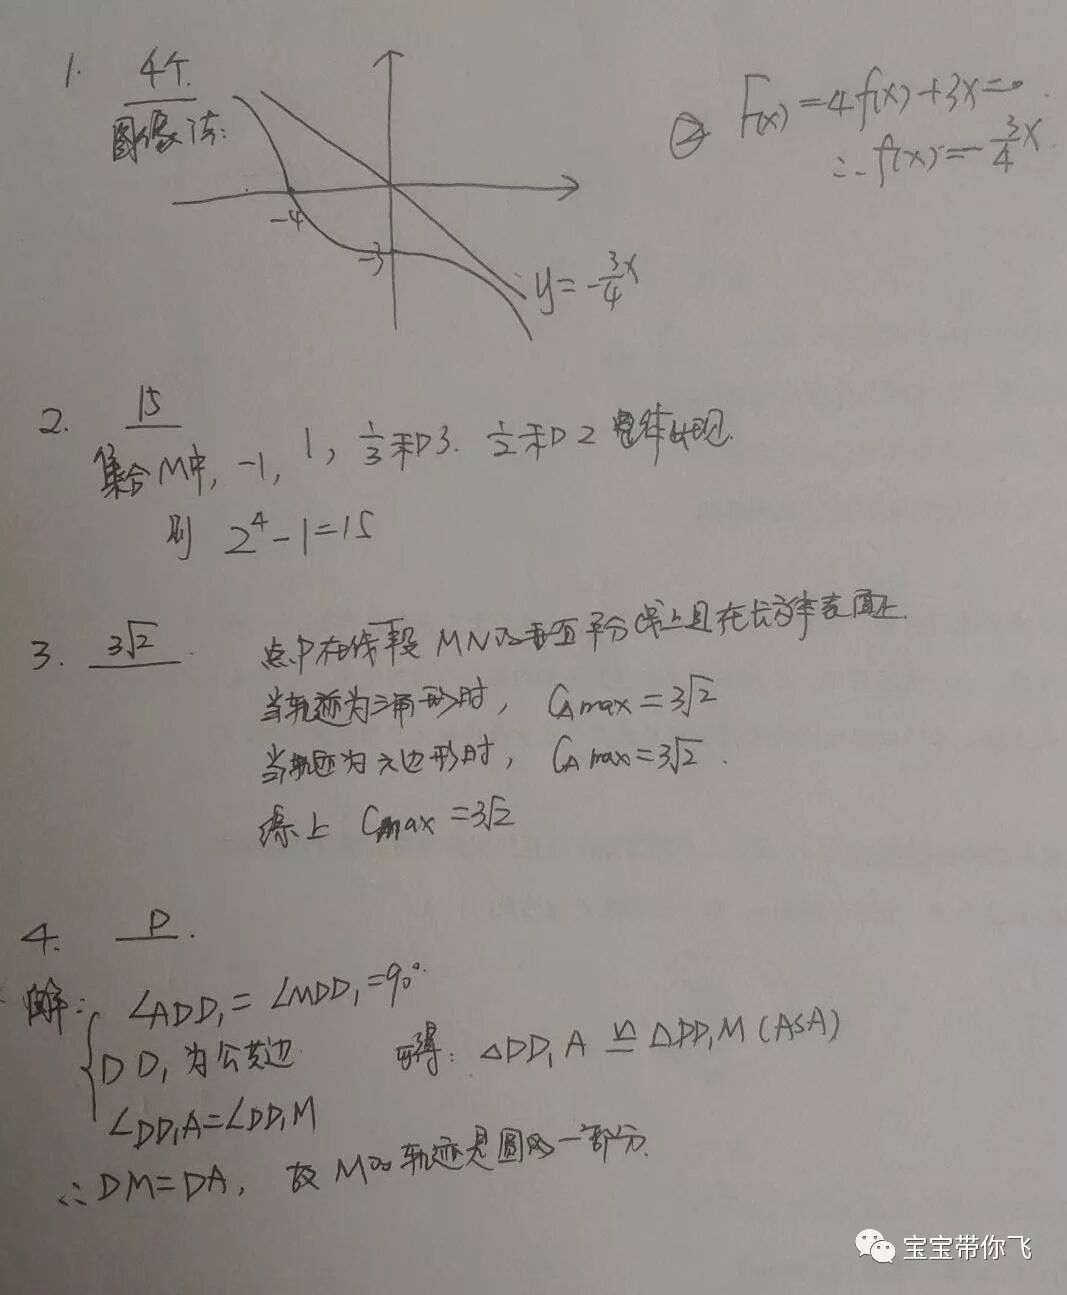 1. 4个.
图像法:
-4
-3
y=-3/4x
② F(x)=4f(x)+3x=0.
∴f(x)=-3/4x
2. 15
集合M中, -1, 1, 1/3和3. 1/2和2 整体出现.
则 2⁴-1=15
3. 3√2
点P在线段MN的垂直平分线上且在长方体表面上.
当轨迹为三角形时, C△max=3√2
当轨迹为六边形时, C△max=3√2.
综上 Cmax=3√2
4. D.
解: ∠ADD₁=∠MDD₁=90°.
DD₁为公共边
可得: △DD₁A≌△DD₁M(ASA)
∠DD₁A=∠DD₁M
∴DM=DA, 故M的轨迹是圆的一部分.
宝宝带你飞